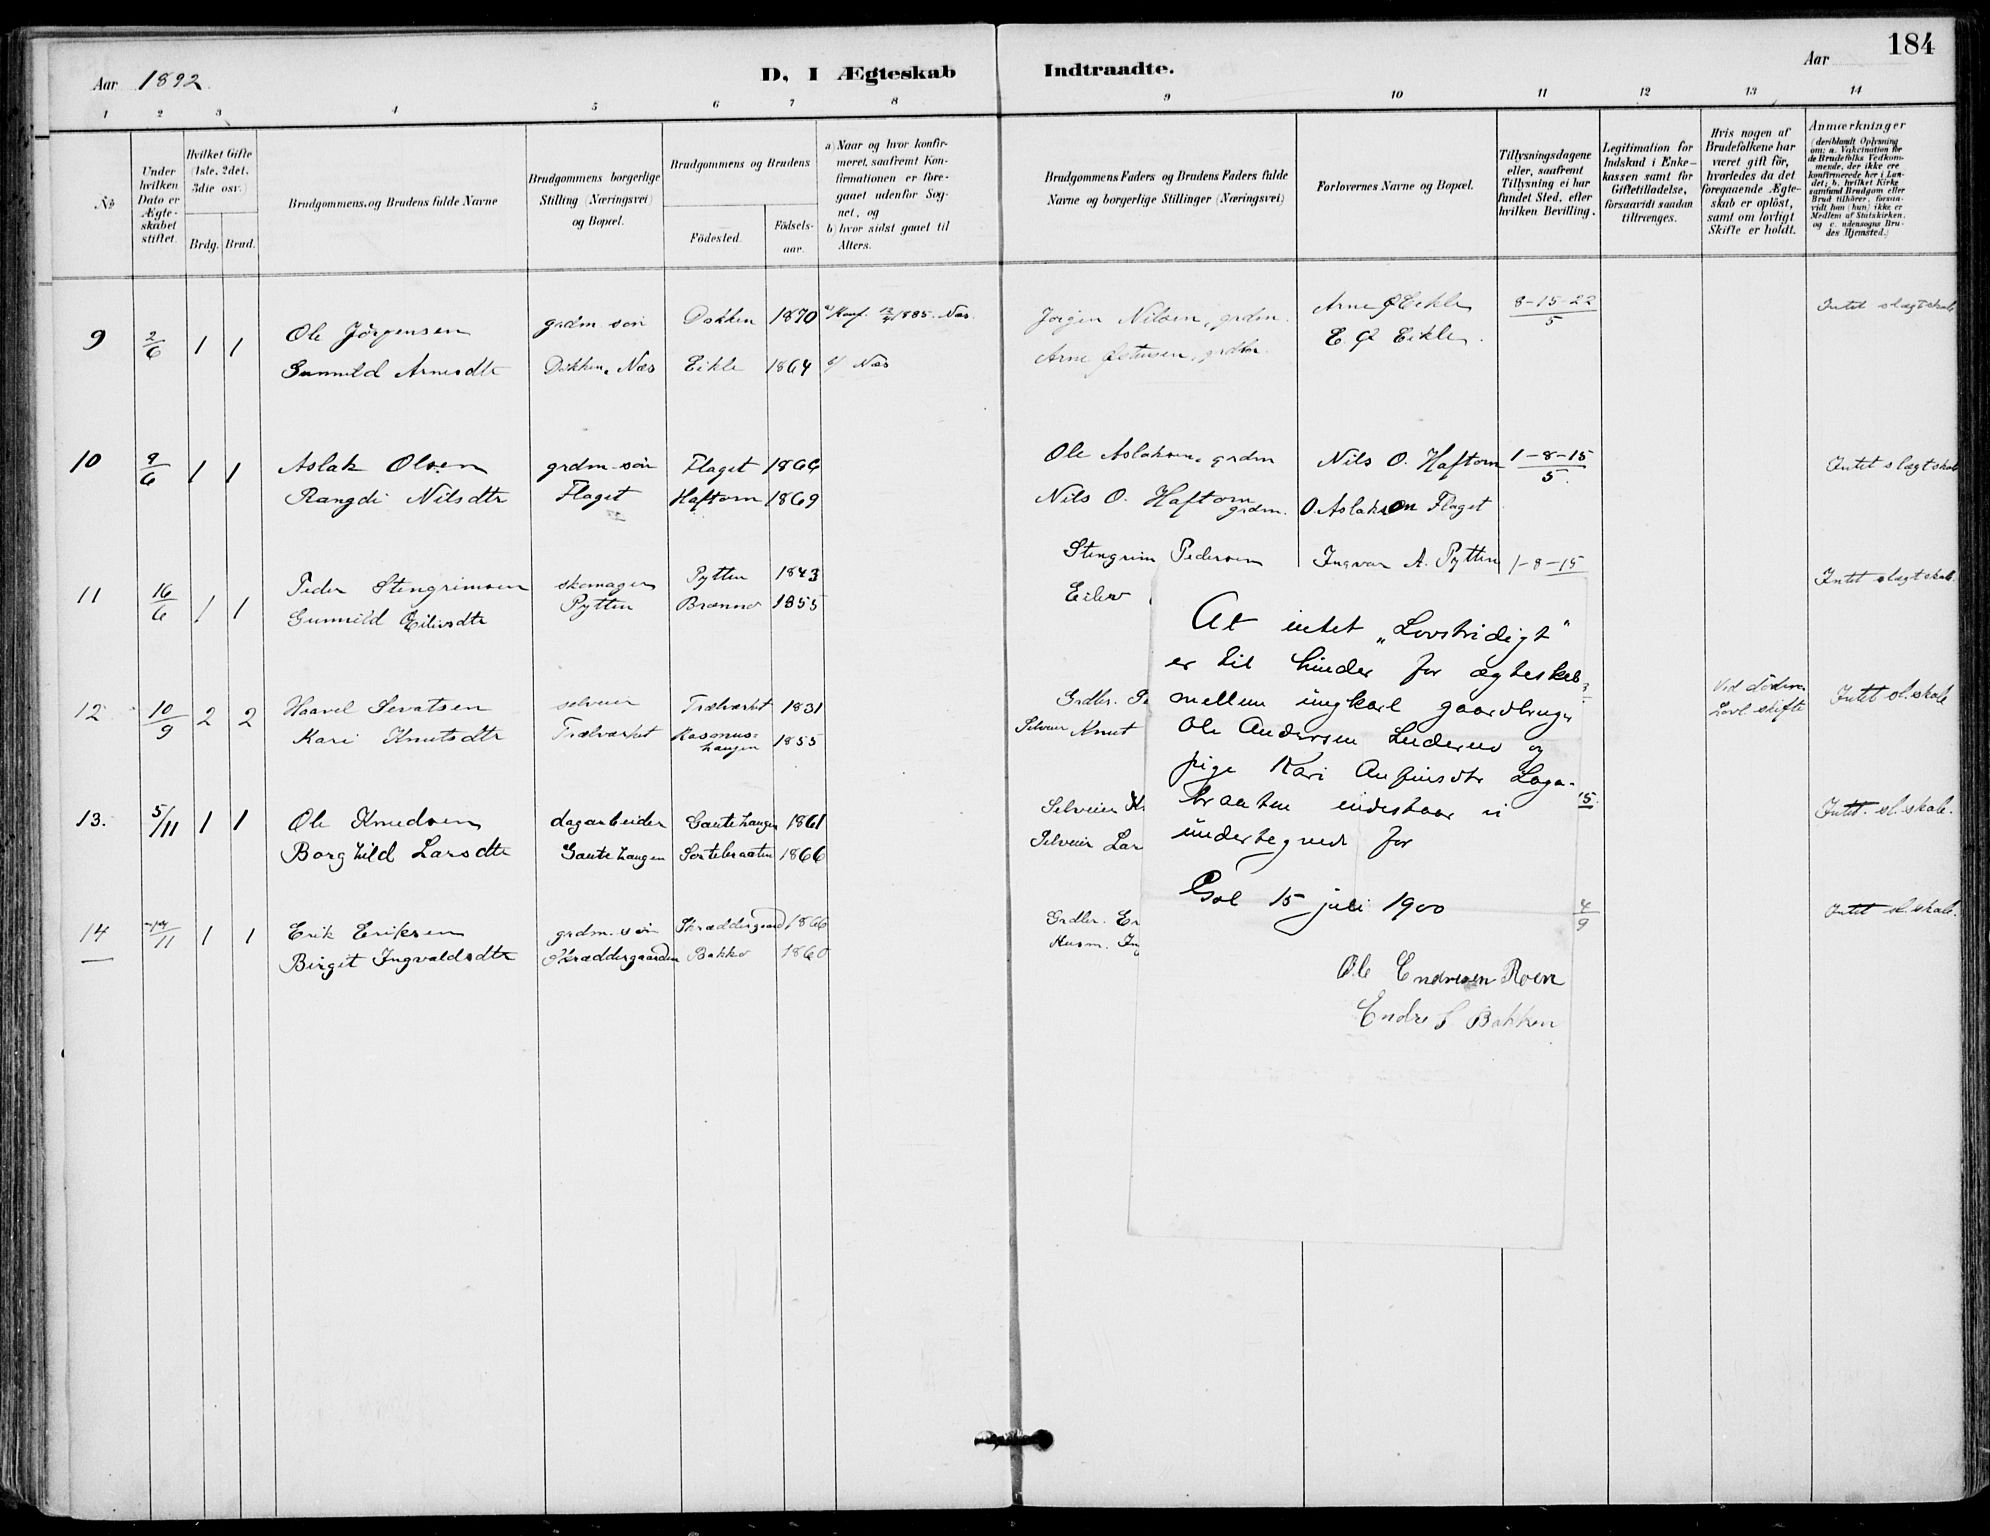 184
Aar 1892.
D. I Ægteskab Indtraadte.
Aar
1 2 3 4 5 6 7 8 9 10 11 12 13 14
№
Under hvilken Dato er Ægteskabet stiftet.
Hvilket Gifte (1ste, 2det, 3die osv.)
Brdg. Brud.
Brudgommens og Brudens fulde Navne
Brudgommens borgerlige Stilling (Næringsvei) og Bopæl.
Brudgommens og Brudens
Födested. Födsels-aar.
a) Naar og hvor konfir-
meret, saafremt Kon-
firmationen er fore-
gaaet udenfor Sog-
net, og
b) hvor sidst gaaet til
Alters.
Brudgommens Faders og Brudens Faders fulde
Navne og borgerlige Stillinger (Næringsvei)
Forlovernes Navne og Bopæl.
Tillysningsdagene
eller, saafremt
Tillysning ei har
fundet Sted, efter
hvilken Bevilling.
Legitimation for
Indskud i Enke-
kassen samt for
Giftetilladelse,
forsaavidt saadan
tiltrænges.
Hvis nogen af
Brudefolkene har
været gift för,
hvorledes da det
foregaaende Ægte-
skab er oplöst,
samt om lovligt
Skifte er holdt.
Anmærkninger
(deriblandt Oplysning
om: a. Vakcination for
de Brudefolks Vedkom-
mende, der ikke ere
konfirmerede her i Lan-
det; b. hvilket Kirke-
samfund Brudgom eller
Brud tilhörer, forsaa-
vidt han (hun) ikke er
Medlem af Statskirken,
og c. udensogns Bru-
des Hjemsted.)
9 2/6 1 1 Ole Jörgensen grdm. sön Dokken 1870 a/ Konf. 1885. Næs. Jørgen Nilsen, grdm. Arne Ø Eikle 8-15-22/5 Intet slægtskab
Gunnild Arnesdtr Dokken, Næs Eikle 1864 b/ Næs Arne Østensen, grdbr. E. Ø Eikle.
10 9/6 1 1 Aslak Olsen grdm. sön Flaget 1866 Ole Aslaksen, grdm Nils O. Haftorn 1-8-15/5. Intet slægtskab
Rangdi Nilsdtr Flaget Haftorn 1869 Nils O. Haftorn grdm. O. Aslaksen Flaget
11 16/6 1 1 Peder Stengrimsen skomager Pytten 1843 Stengrim Pedersen Ingvar A. Pytten 1-8-15 Intet slægtskab.
Gunnild Eilivsdtr Pytten Brenno 1855 Eiliv
12 10/9 2 2 Haavel Sevatsen selveier Trælværket 1831 Grdbr. Ved döden. Intet sl.skab
Kari Knutsdtr Trælværket Rasmus-haugen 1855 Selveier Knut Lovl. skifte
13. 5/11 1 1 Ole Knudsen dagarbeider Gautehaugen 1861 Selveier 15. Intet. sl.skab.
Borghild Larsdtr Gautehaugen Sortebraaten 1866 Selveier Lar
14 /11 1 1 Erik Eriksen grdm. sön Skræddergaard 1866 Grdbr. Er 4/9 Intet sl.skab.
Birgit Ingvaldsdtr Skræddergaarden Bakko 1860 Husm. Ing
At intet „Lovstridigt"
er til hinder for ægteskab
mellem ungkarl gaardbruger
Ole Andersen og
pige Kari Anfinsdtr Laga-
braaten indestaar vi
undertegnede for
Gol 15 juli 1900
Ole Endresen Roen
Endre S Bakken